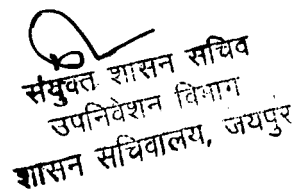 संयुक्त शासन सचिव
उपनिवेशन विभाग
शासन सचिवालय, जयपुर